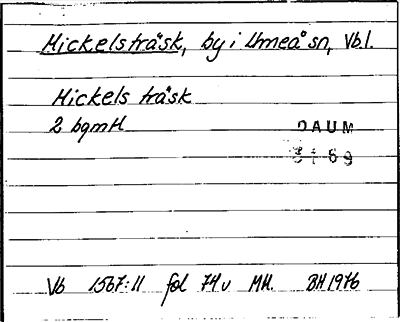 Mickelsträsk, by i Umeå sn, Vb.l.
Mickels träsk
2 bgmtl
DAUM
Vb 1567:11 fol 74v Mtl. BH 1976